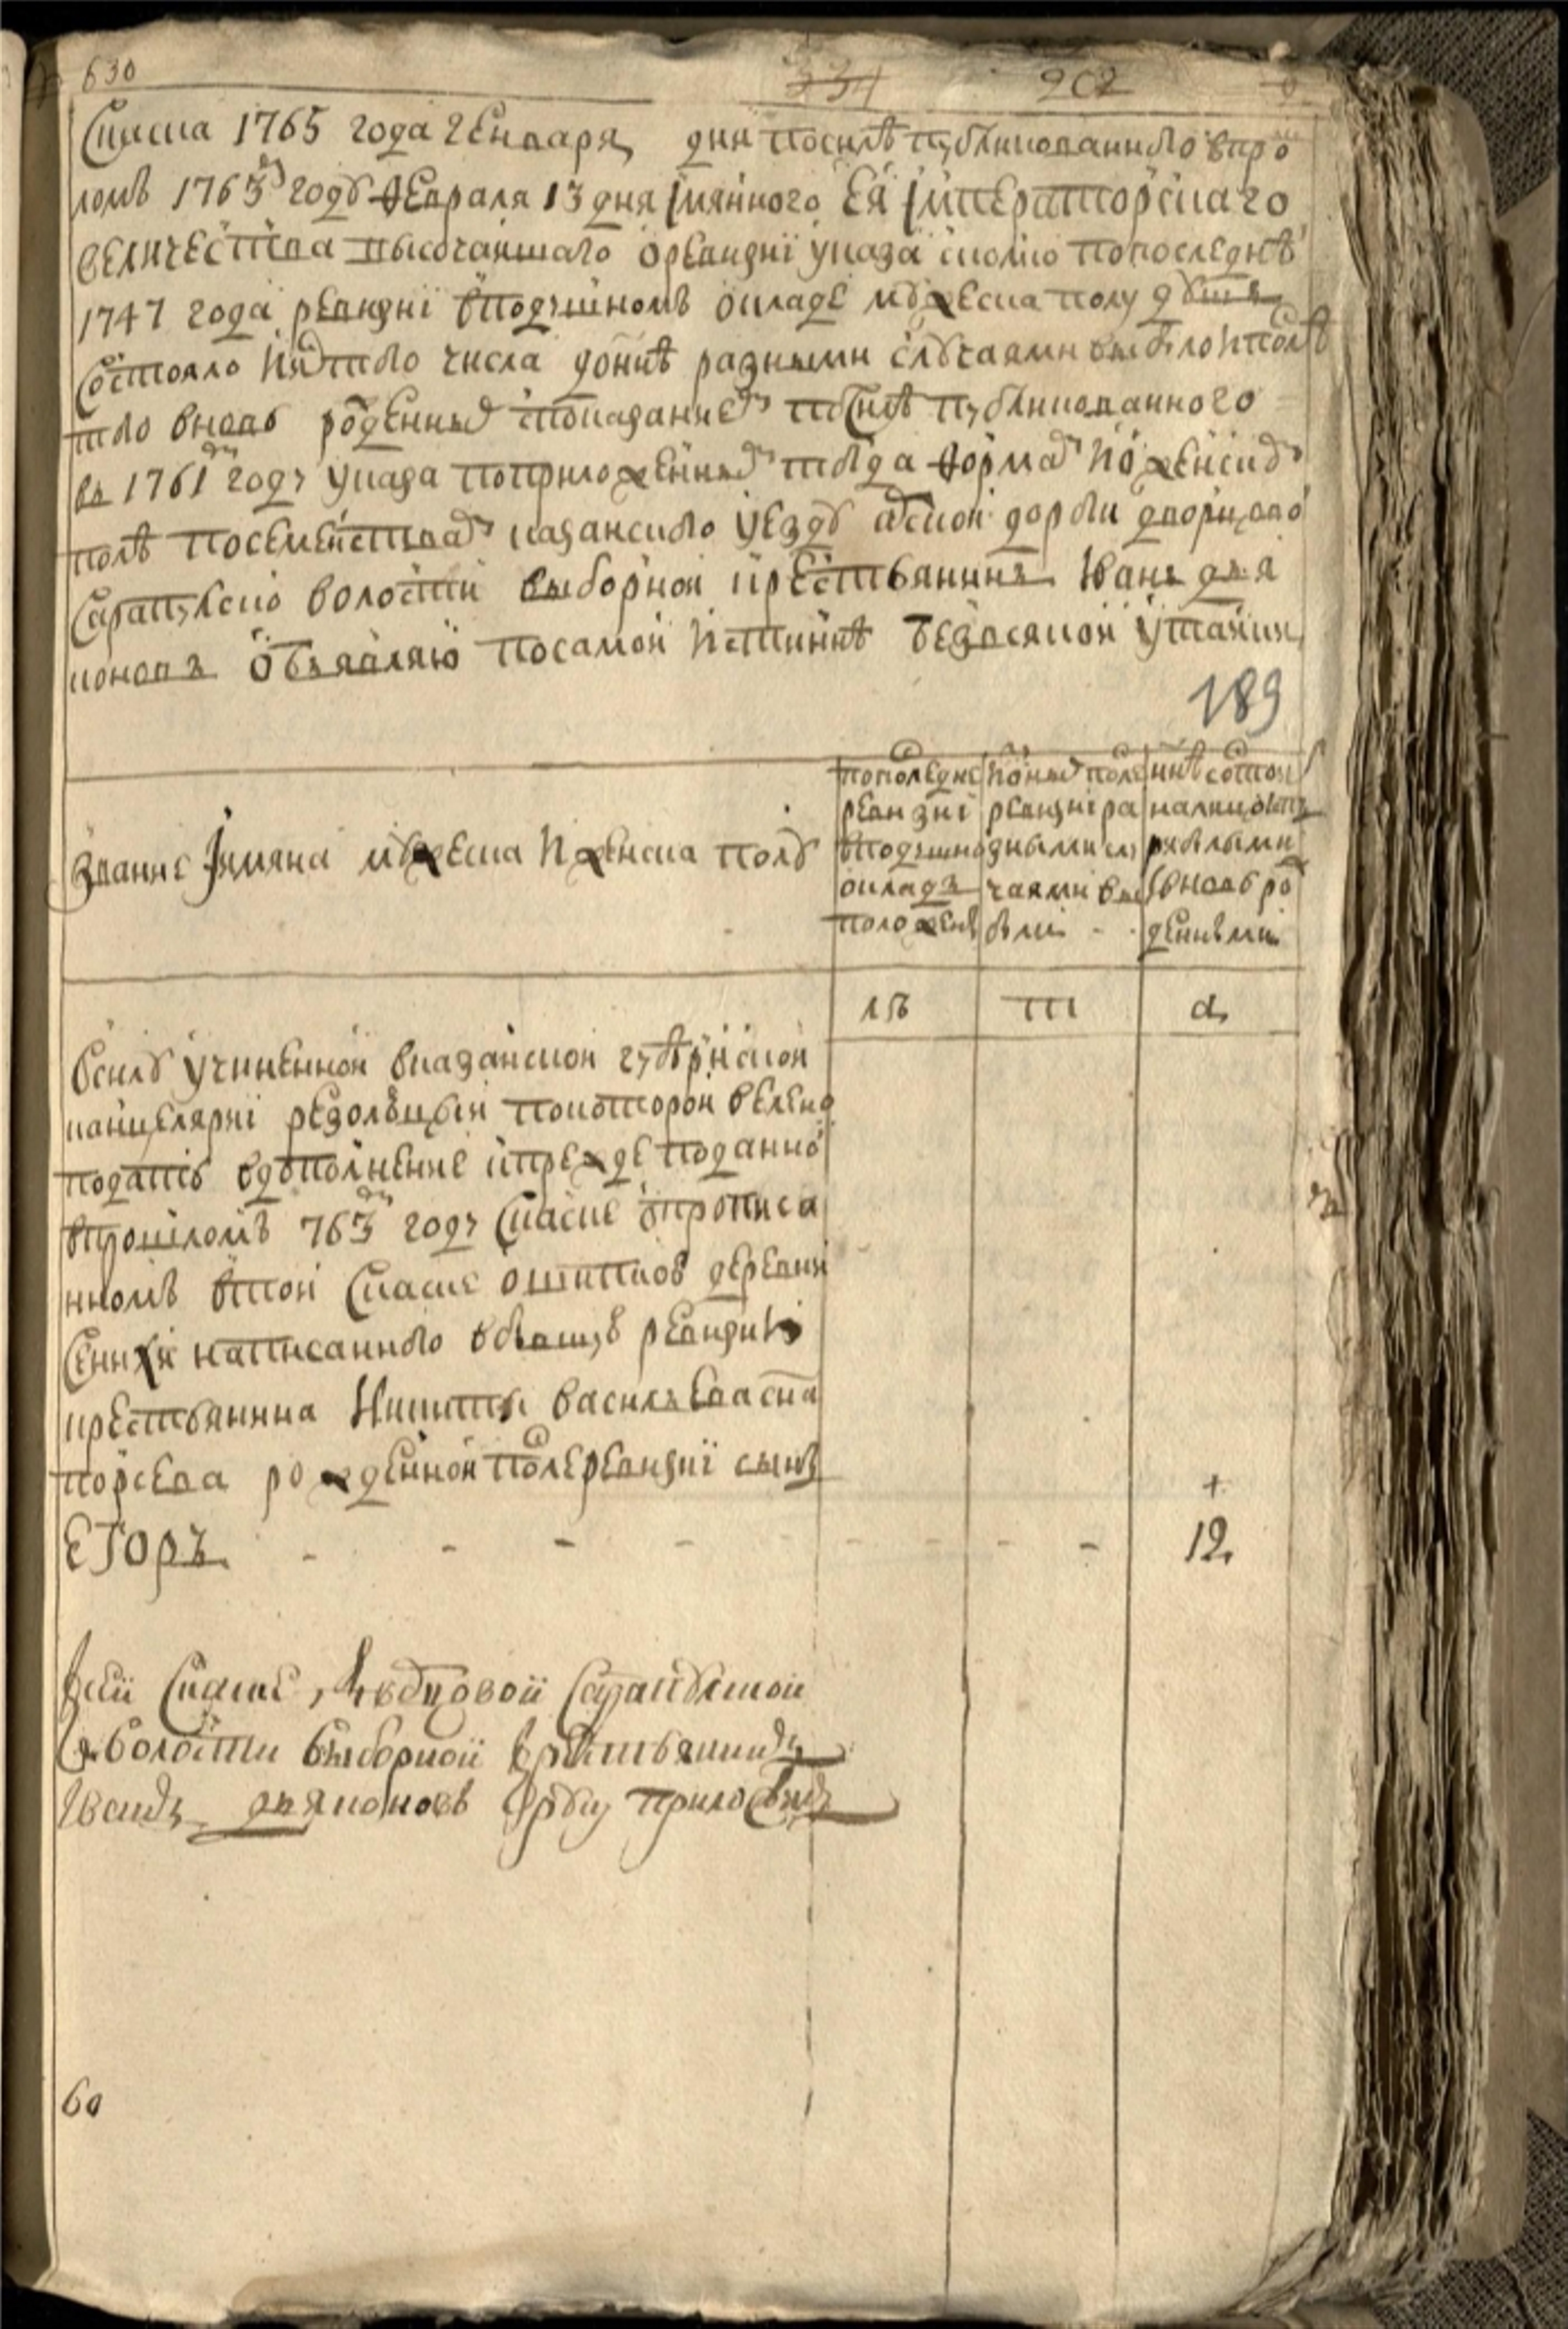 630 334 902
Сказка 1765 года генваря дня посилѣ публикованного впро
ломъ 1763м году февраля 13 дня імянного Ея Імператорскаго
величества высочаишаго оревизиі указа сколко попоследнеи
1747 года ревизиі вподушномъ окладе мужеска полу душъ
состояло ис того числа доннѣ разными случаями выбыло и после
того вновь рожденных споказаниемъ посилѣ публикованного
въ 1761м году указа поприложеннымъ тогда формамъ и о женскомъ
полѣ посемействамъ казанского уезду арскои дороги дворцовои
Сарапулскои волости выборнои крестьянинъ Иванъ дья
коновъ объявляю посамои истиннѣ безовсякои утаики
189
Звание Імяна мужеска и женска полу
попоследнеи ревизиі вподушнои окладъ положены
ис оных после ревизиі разными случаями выбыли
ннѣ состоит налицо исприбылыми і вновь рожденными
лѣ
Вcилу учиненнои вказанскои губернскои
канцеляриі резолюціи покоторои велено
подать вдополнение кпрежде поданнои
впрошломъ 763м году сказке опрописа
нномъ втои сказке деревни
написанного вбывшую ревизию
крестьянина Никиты васильева сна
порсева рожденнои послеревизиі сынъ
Егоръ - - - - - - - - 12
Ксеи сказке дворцовои Сарапулскои
волости выборнои крестьянинъ
Иванъ дьяконовъ руку приложилъ
60